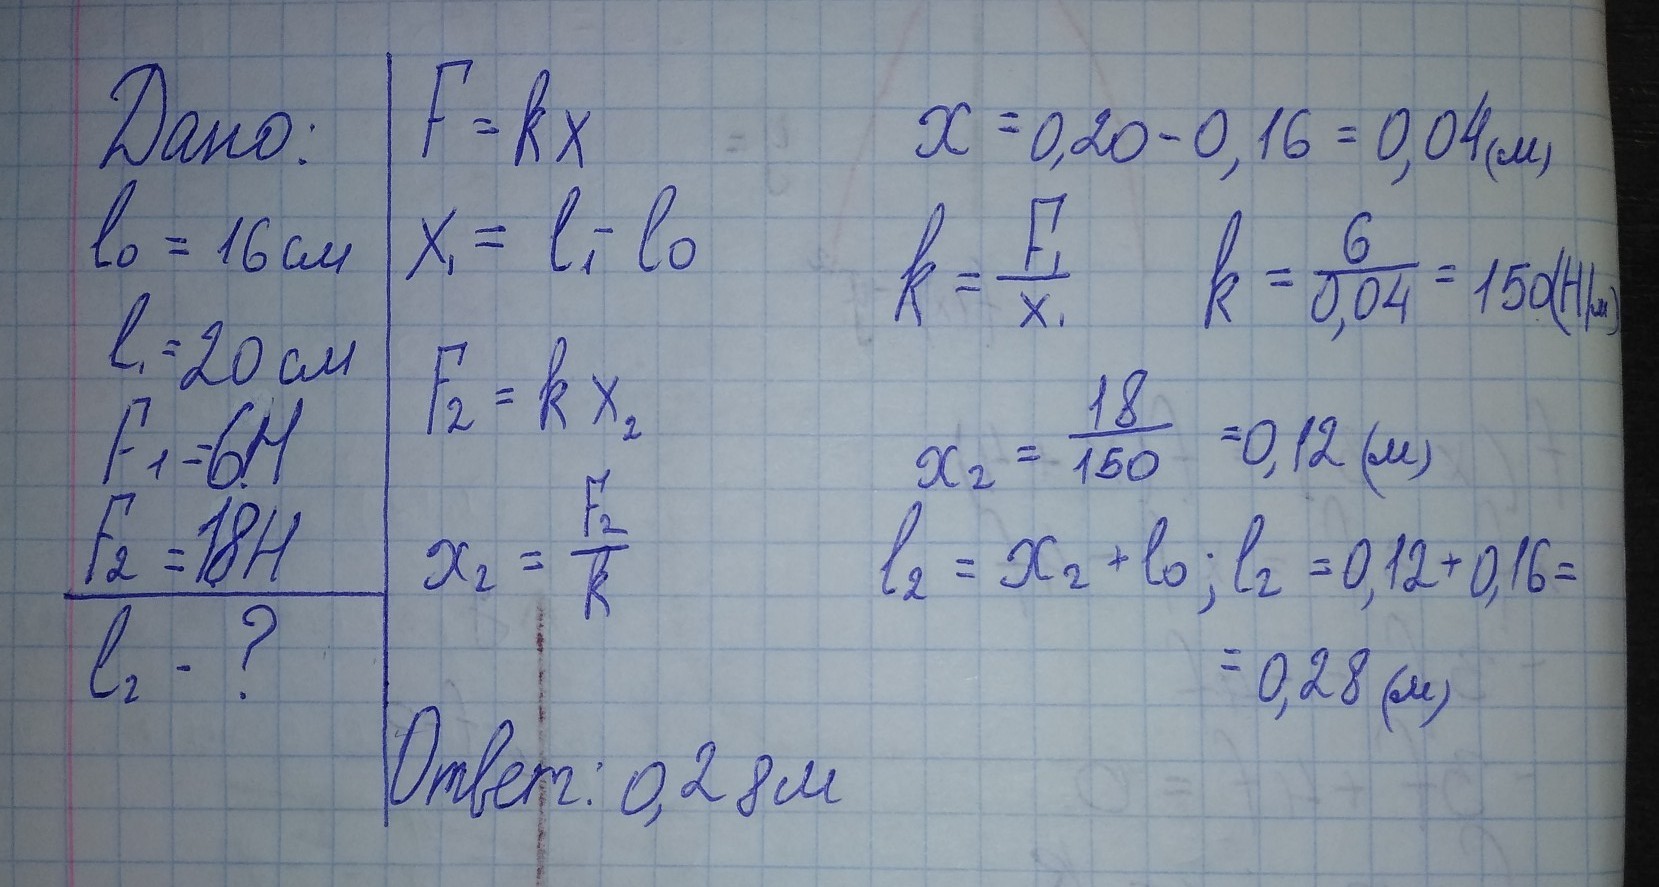 Дано:
l₀ = 16 см
l₁ = 20 см
F₁ = 6Н
F₂ = 18Н
l₂ - ?
F = kx
x₁ = l₁ - l₀
F₂ = k x₂
x₂ = F₂/k
x = 0,20 - 0,16 = 0,04 (м)
k = F₁/x₁ k = 6/0,04 = 150 (Н/м)
x₂ = 18/150 = 0,12 (м)
l₂ = x₂ + l₀; l₂ = 0,12 + 0,16 =
= 0,28 (м)
Ответ: 0,28м